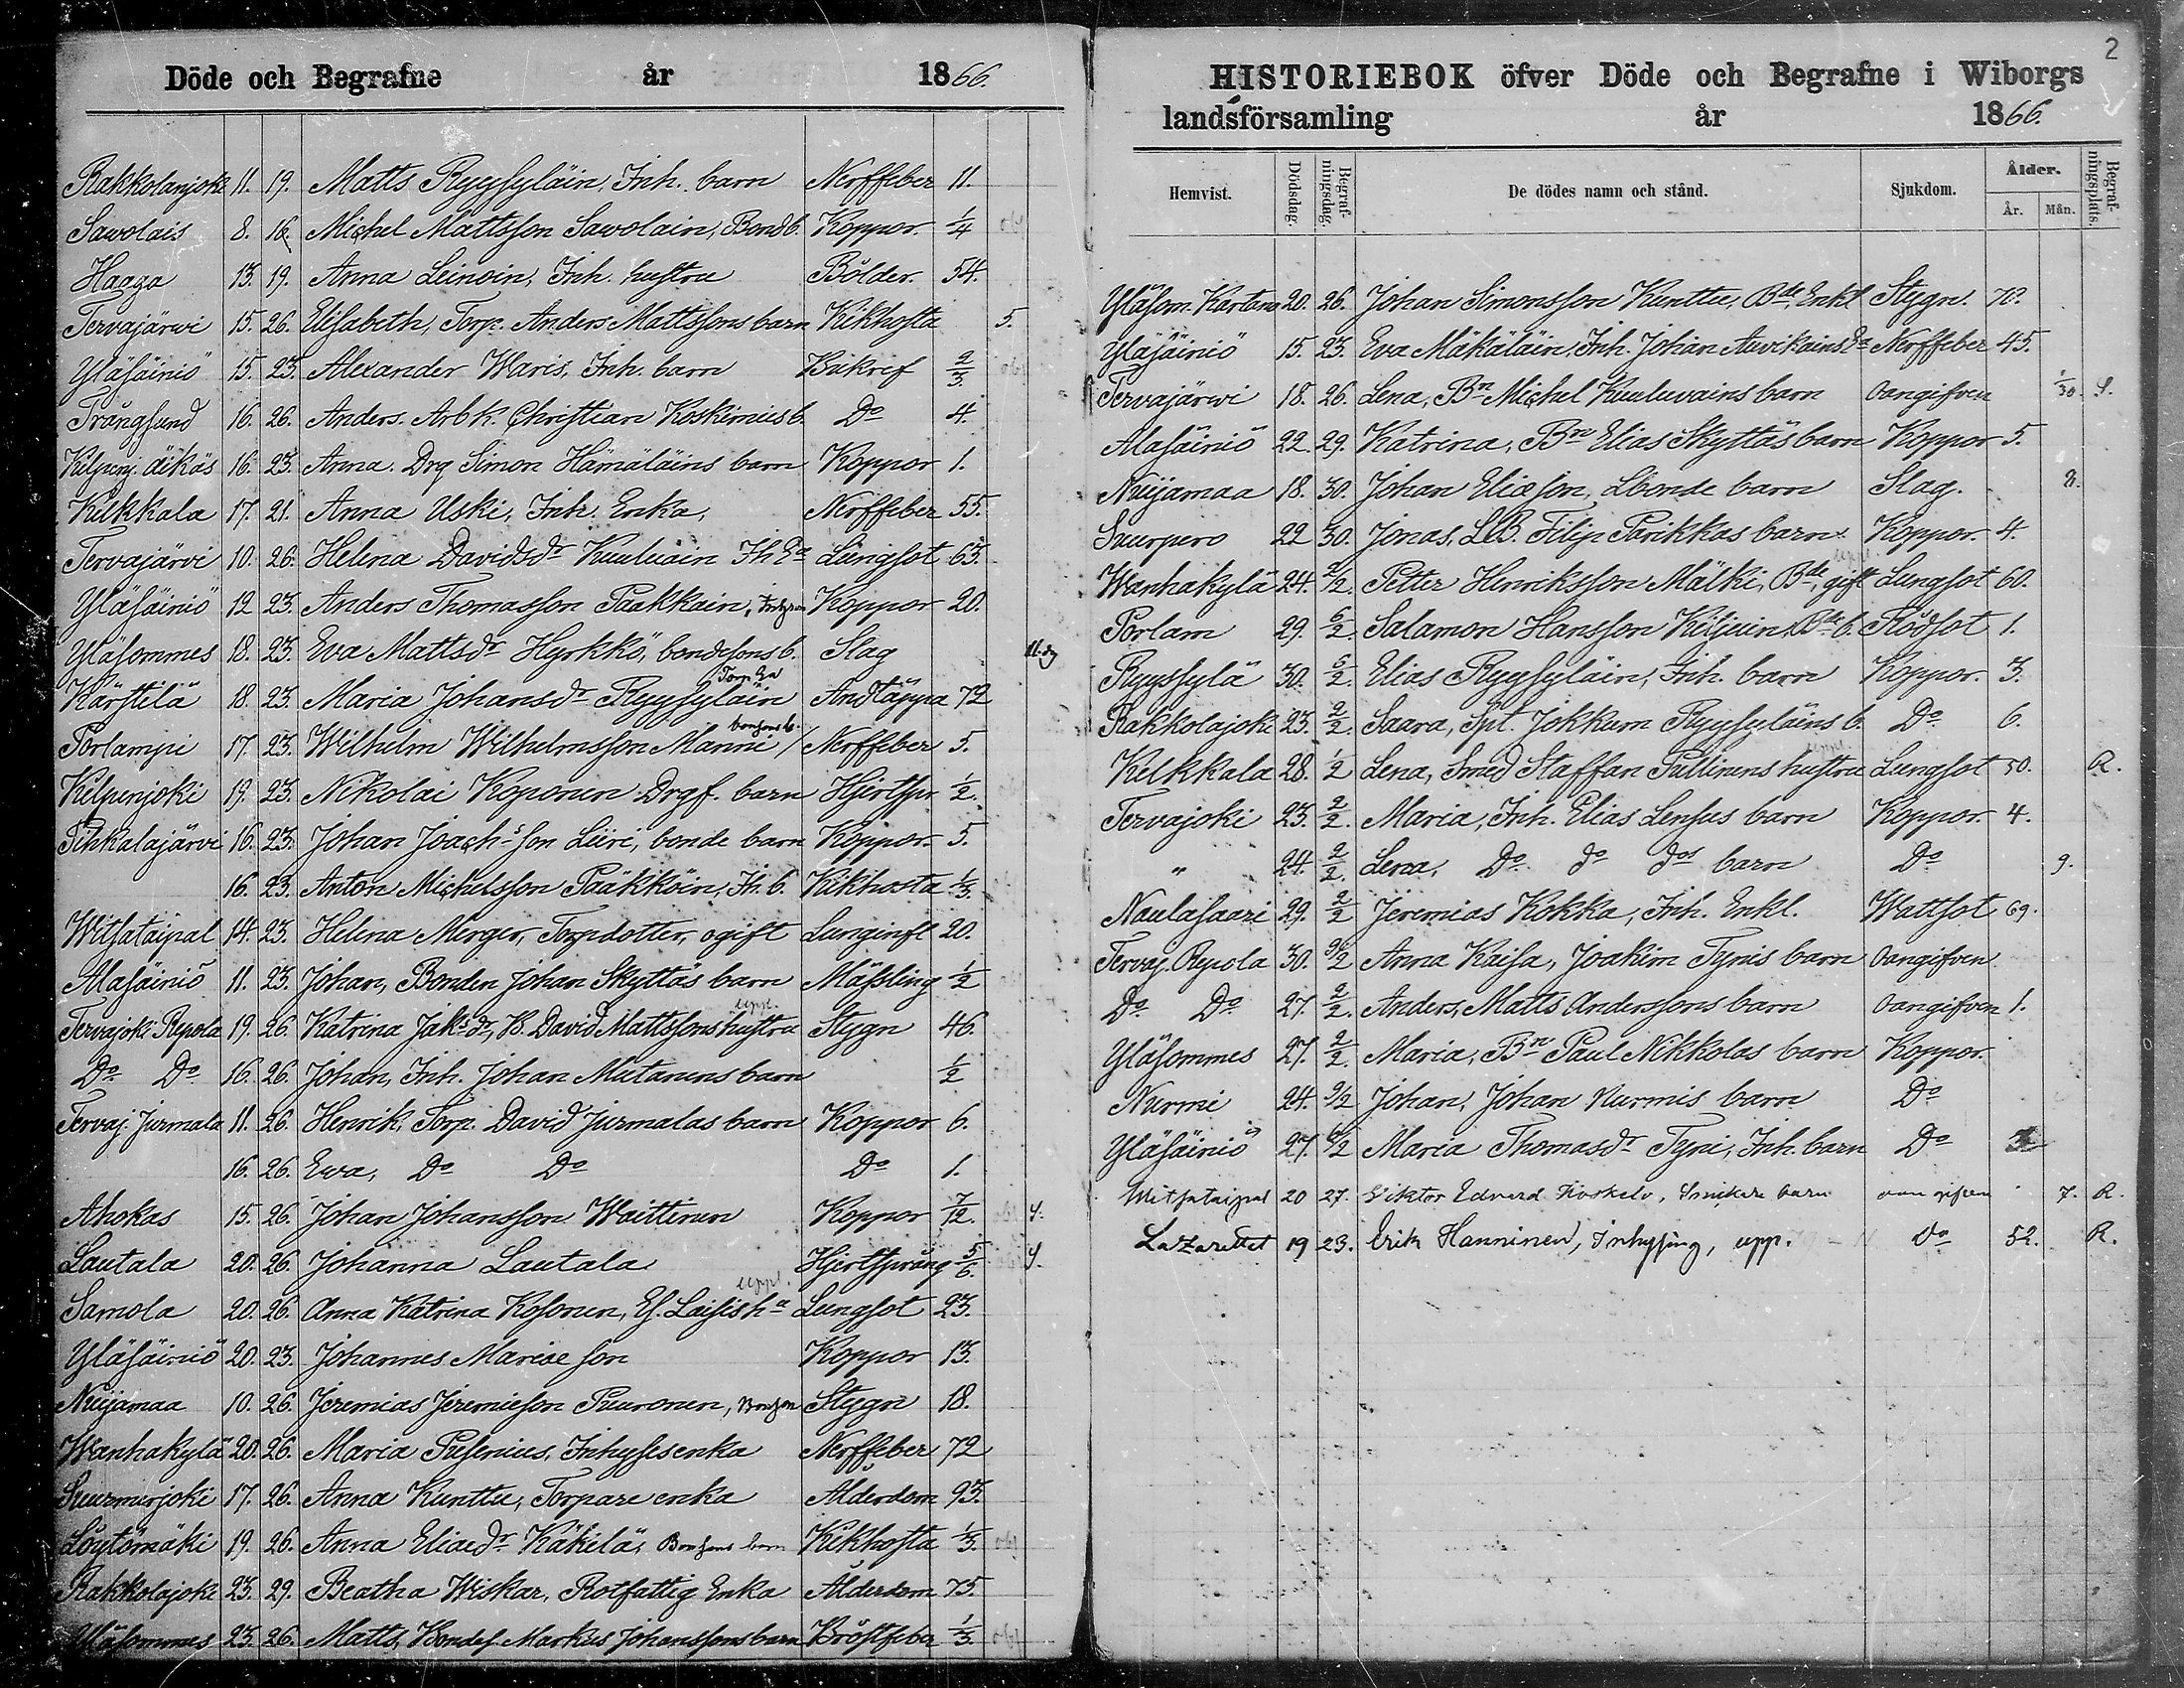 Döde och Begrafne år 1866.
Rakkolanjoki 11. 19. Matts Ryyssyläin, Inh. barn Nerffeber 11.
Sawolais 8. 16. Michel Mattsson Sawolain, Bond b. Koppor. 1/4
Haaga 13. 19. Anna Leinoin, Inh. hustru Bölder. 54.
Tervajärwi 15. 26. Elisabeth, Torp. Anders Mattssons barn Kikhosta 5.
Yläsäiniö 15. 23. Alexander Waris, Inh. barn Bukref 2/3
Trångsund 16. 26. Anders. Arb k. Christian Koskimies b. Do 4.
Kilpenj. äikäs 16. 23. Anna. Drg Simon Hämäläins barn Koppor 1.
Kilkkala 17. 21. Anna Uski, Inh. Enka, Nerffeber 55.
Tervajärvi 10. 26. Helena Davidsdr Kuuluain Ih Ea Lungsot 63.
Yläsäiniö 12 23. Anders Thomasson Paakkain, Koppor 20.
Yläsommes 18. 23. Eva Mattsdr Hyrkkö, bondesons b. Slag 11. dg
Kärstilä 18. 23. Maria Johansdr Ryyssyläin Torp Ea Andtäppa 72
Porlampi 17. 23. Wilhelm Wilhelmsson Manni / bonsons b. Nerffeber 5.
Kilpenjoki 19. 23. Nikolai Koponen Drgf. barn Hjertspr. 1/2.
Pihkalajärvi 16. 23. Johan Joachs son Liiri, bonde barn Koppor. 5.
16. 23. Anton Michelsson Pääkköin, Ih. b. Kikhosta 1/3.
Witsataipal 14. 23. Helena Merger, Torpdotter, ogift Lunginfl 20.
Alasäiniö 11. 23. Johan, Bonden Johan Skyttäs barn Mässling 1/2
Tervajoki Repola 19. 26. Katrina Jaks dr, B. David Mattssons hustru uppl. Stygn 46.
Do Do 16. 26. Johan, Inh. Johan Mutanens barn 1/2
Tervaj. Jurmala 11. 26. Henrik, Torp. David Jurmalas barn Koppor 6.
16. 26. Ewa, Do Do Do 1.
Ahokas 15. 26. Johan Johansson Waittinen Koppor 7/12. S.
Lautala 20. 26. Johanna Lautala Hjertsprång 5/6. S.
Samola 20. 26. Anna Katrina Kosonen, Ef. Laisis ha uppl. Lungsot 23.
Yläsäiniö 20. 23. Johannes Mariæ son Koppor 13.
Nuijamaa 10. 26. Jeremias Jeremieson Puuronen, Bonson Stygn 18.
Wanhakylä 20. 26. Maria Pusenius, Inhyses enka Nerffeber 72
Suurmerjoki 17. 26. Anna Kunttu, Torpare enka Ålderdom 93.
Löytömäki 19. 26. Anna Eliædr Käkelä, Bonsons barn Kikhosta 1/3.
Rakkolajoki 23. 29. Beatha Wiskar, Rotfattig Enka Ålderdom 75.
Yläsommes 23. 26. Matts, Bondes. Markus Johanssons barn Bröstfeber 1/3.
2
HISTORIEBOK öfver Döde och Begrafne i Wiborgs
landsförsamling år 1866.
Hemvist. Dödsdag. Begrafningsdag. De dödes namn och stånd. Sjukdom. Ålder. År. Mån. Begrafningsplats.
Yläsom. Kartano 20. 26. Johan Simonsson Kunttu, Bde, Enkl Stygn. 70.
Yläsäiniö 15. 23. Eva Mäkäläin, Inh. Johan Auvikains Ea Nerffeber 45.
Tervajärwi 18. 26. Lena, Bn Michel Kuuluvains barn oangifven 1/30. S.
Alasäiniö 22. 29. Katrina, Bn Elias Skyttäs barn Koppor 5.
Nuijamaa 18. 30. Johan Eliæson, Lbonde barn Slag. 8.
Suurpero 22 30. Jonas, LB. Filip Parikkas barn Koppor. 4.
Wanhakylä 24. 2/2. Petter Henriksson Mälki, Bde, gift uppl. Lungsot 60.
Porlam 29. 6/2. Salamon Hansson Kiljuin, Bde b. Flödsot 1.
Ryyssylä 30. 6/2. Elias Ryyssyläin, Inh. barn Koppor. 3.
Rakkolajoki 23. 2/2. Saara, Spt. Jokkum Ryyssyläins b. Do 6.
Kelkkala 28. 1/2 Lena, Smed Staffan Pullinens hustru uppl. Lungsot 50. R.
Tervajoki 23. 2/2. Maria, Inh. Elias Lensus barn Koppor. 4.
" 24. 2/2. Lena, Do do dos barn Do 9.
Naulasaari 29. 2/2 Jeremias Kokka, Inh. Enkl. Wattsot 69.
Tervaj. Repola 30. 9/2 Anna Kaisa, Joakim Tynis barn oangifven
Do Do 27. 2/2. Anders, Matts Anderssons barn oangifven 1.
Yläsommes 27. 2/2. Maria, Bn Paul Nikkolas barn Koppor.
Nurmi 24. 9/2 Johan, Johan Nurmis barn Do
Yläsäiniö 27. 6/2 Maria Thomasdr Tyni, Inh. barn Do
Witsataipal 20 27. Viktor Edvard Koskelo, Snikare barn oangifven 7. R.
Lazarettet 19 23. Erik Hanninen, Inhysing, upp. do 52. R.